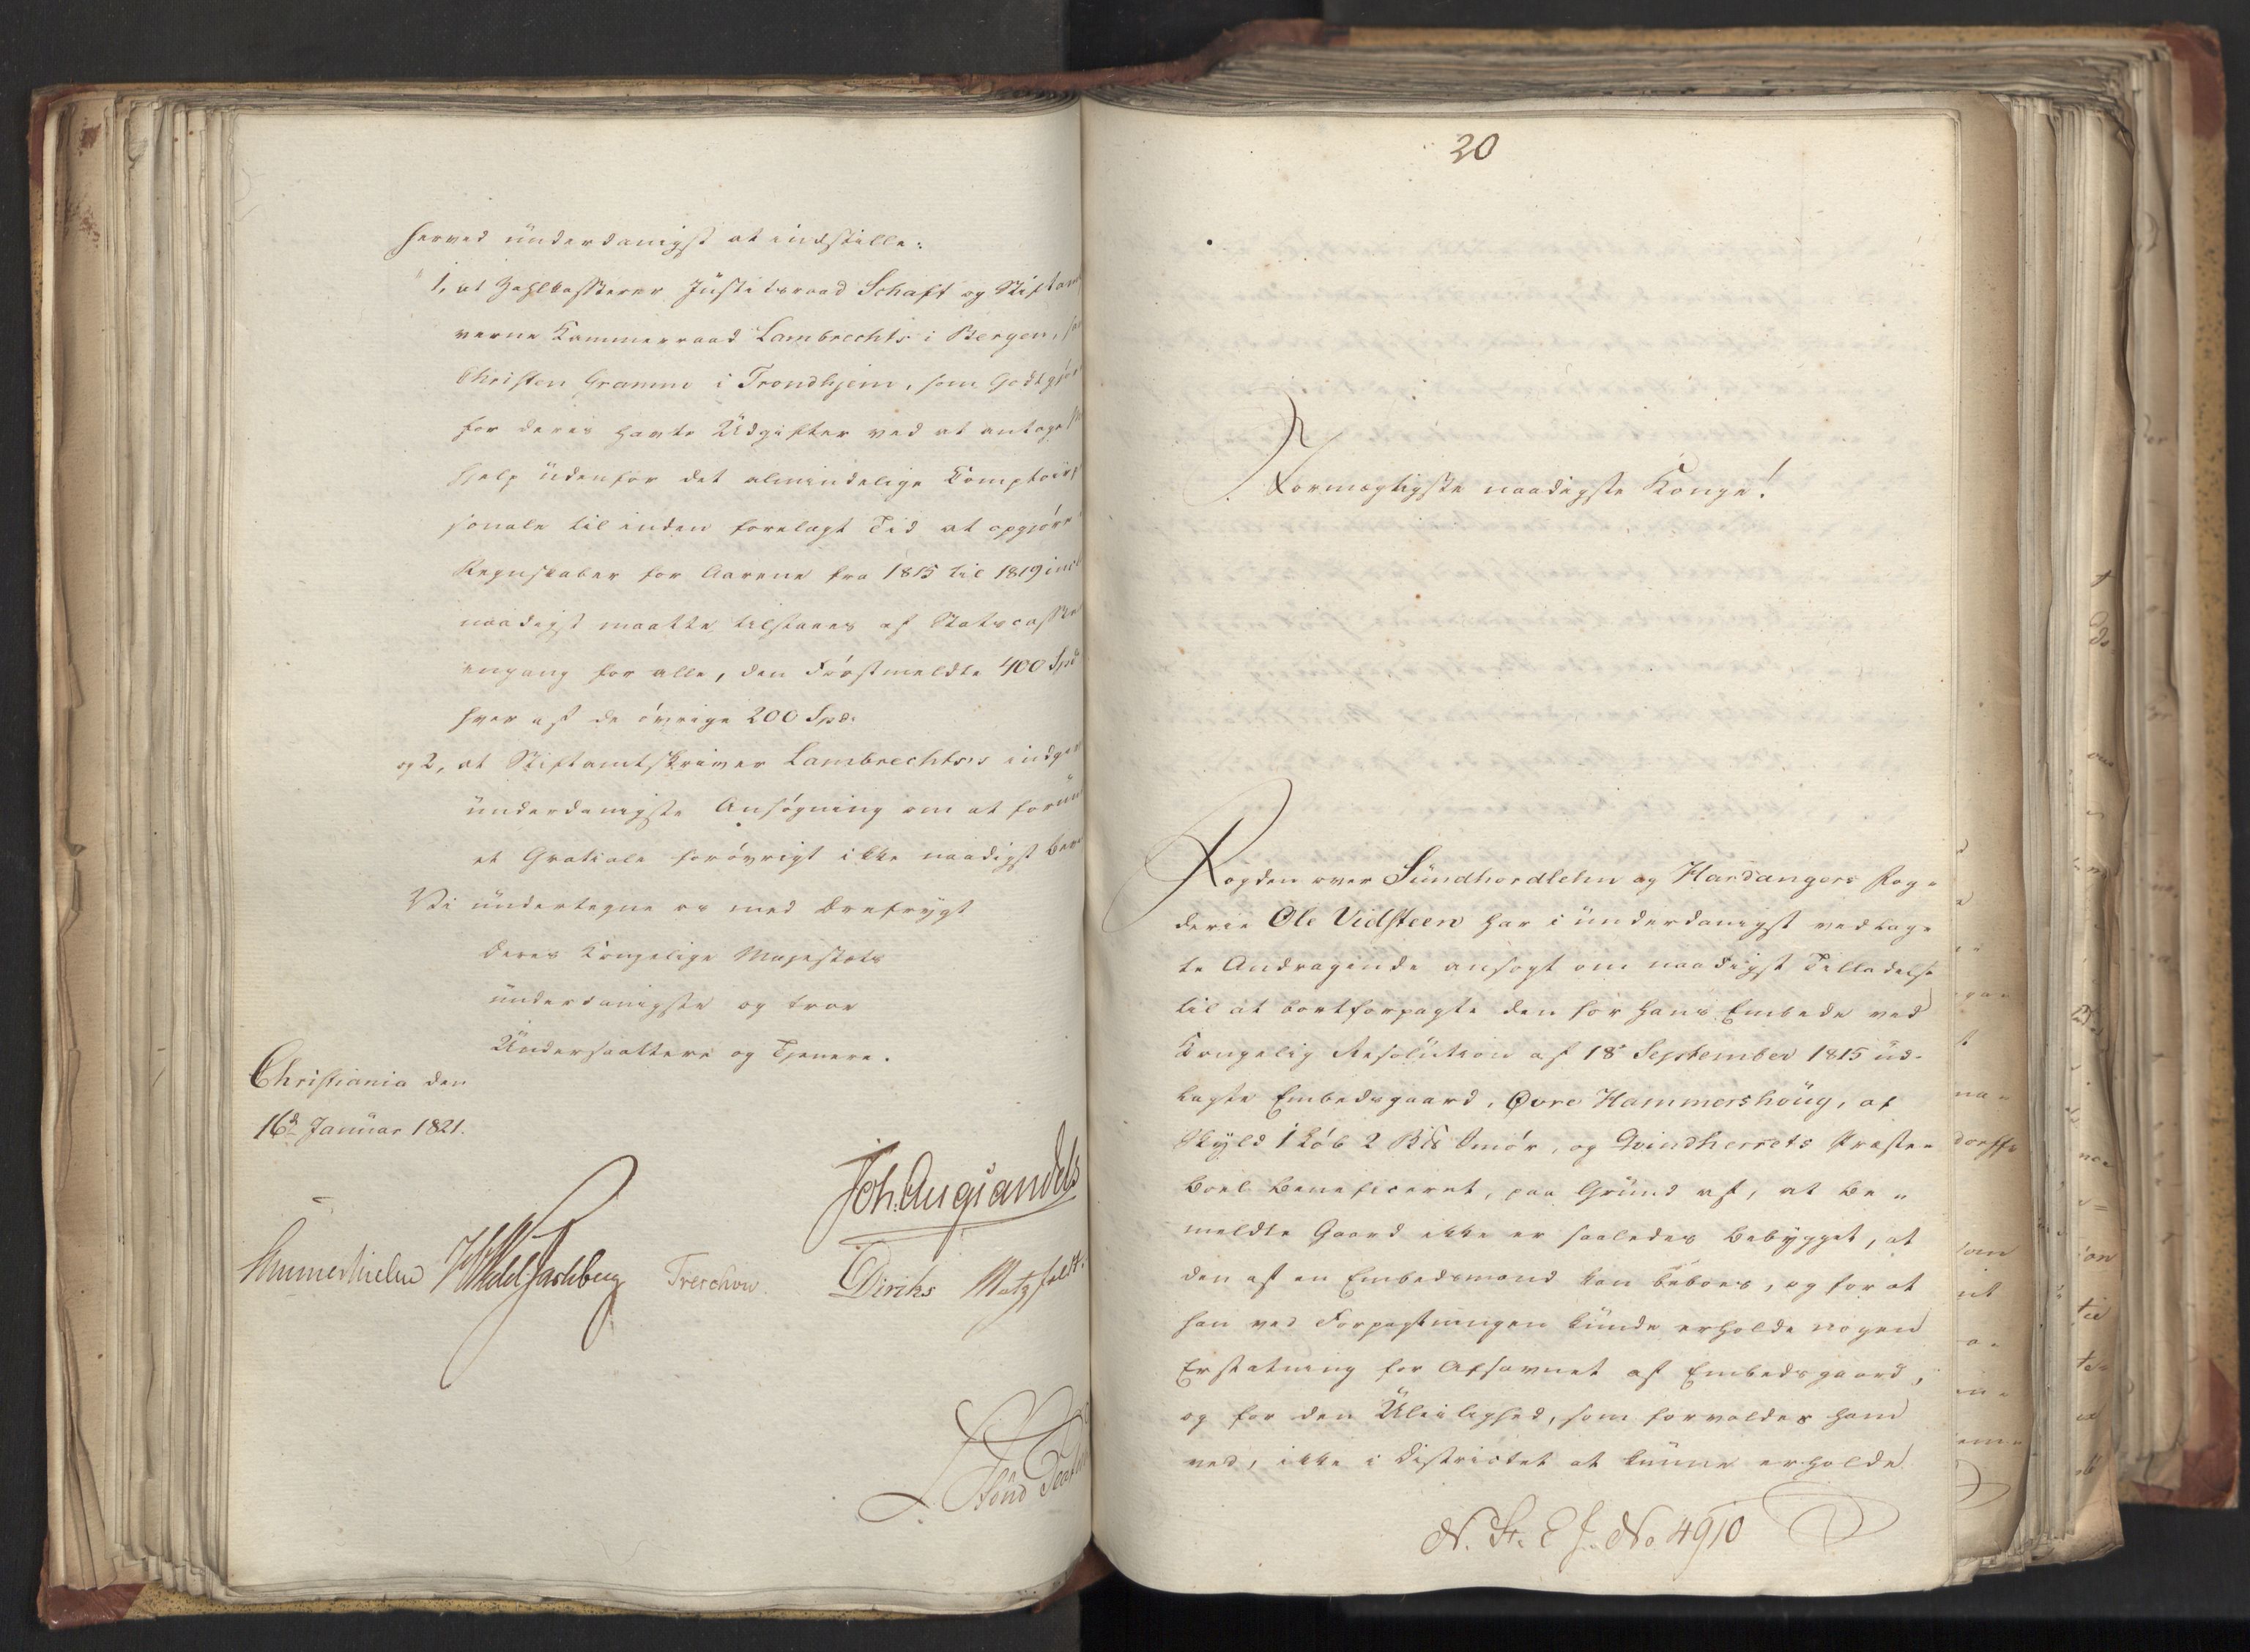 herved ünderdanigst at indstille:
1, at Zahlkasserer Jüstitsraad Schaft og Stiftam
verne Kammerraad Lambrechts i Bergen,
Christen Gramm i Trondhjem, som Godtgjør
for deres havte Üdgifter ved at antage
Hjelp üdenfor det almindelige Comptoirp
sonale til inden forelagt Tid at opgjøre
Regnskaber for Aarene fra 1815 til 1819 incl
naadigst maatte tilstaaes af Statscassen
engang for alle, den Førstmeldte 400 Spd
hver af de øvrige 200 Spd.
og 2, at Stiftamtskriver Lambrechts's indg
ünderdanigste Ansøgning om at forün
et Gratiale forøvrigt ikke naadigst bev
Vi ündertegne os med Ærefrygt
Deres Kongelige Majestæts
ünderdanigste og troe
Ündersaattere og Tjenere.
Christiania den
16d Janüar 1821.
Joh. Aug. Sandels
Sommerhielm Wedel Jarlsberg Treschow. Diriks Motzfeldt.
20
Stormægtigste naadigste Konge!
Fogden over Sündhordlehn og Hardangers Fog-
derie Ole Vidsteen har i ünderdanigst vedlag-
te Andragende ansøgt om naadigst Tilladelse
til at bortforpagte den for hans Embede ved
Kongelig Resolütion af 18d September 1815 üd-
lagte Embedsgaard, Øvre Hammershöug, af
Skyld 1 Løb 2 Smør, og Qvindherrets Præste-
boel beneficeret, paa Gründ af, at be-
meldte Gaard ikke er saaledes bebygget, at
den af en Embedsmand kan beboes, og for at
han ved Forpagtningen künde erholde nogen
Erstatning for Afsavnet af Embedsgaard,
og for den Üleilighed, som forvoldes ham
ved, ikke i Districtet at künne erholde
N. St. E J. No. 4910